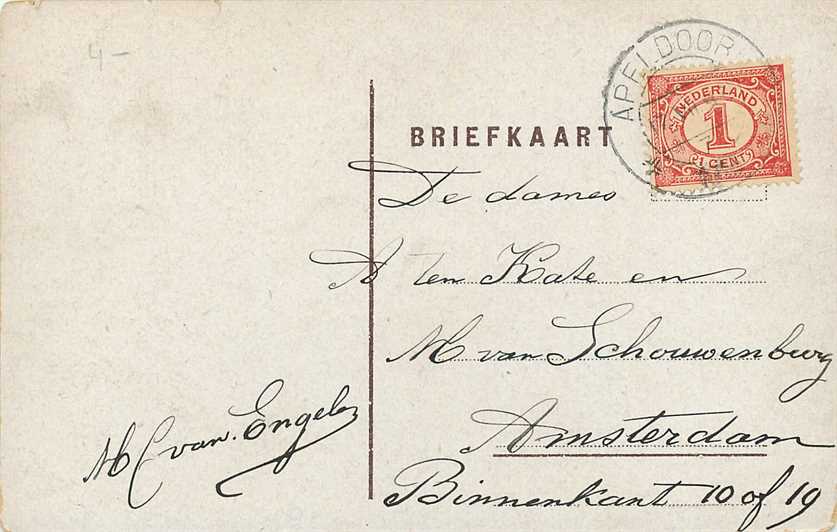 4-
APELDOOR
NEDERLAND
1
1 CENT
BRIEFKAART
De dames
A ten Kate en
M van Schouwenburg
Amsterdam
Binnenkant 10 of 19
M C van Engelen